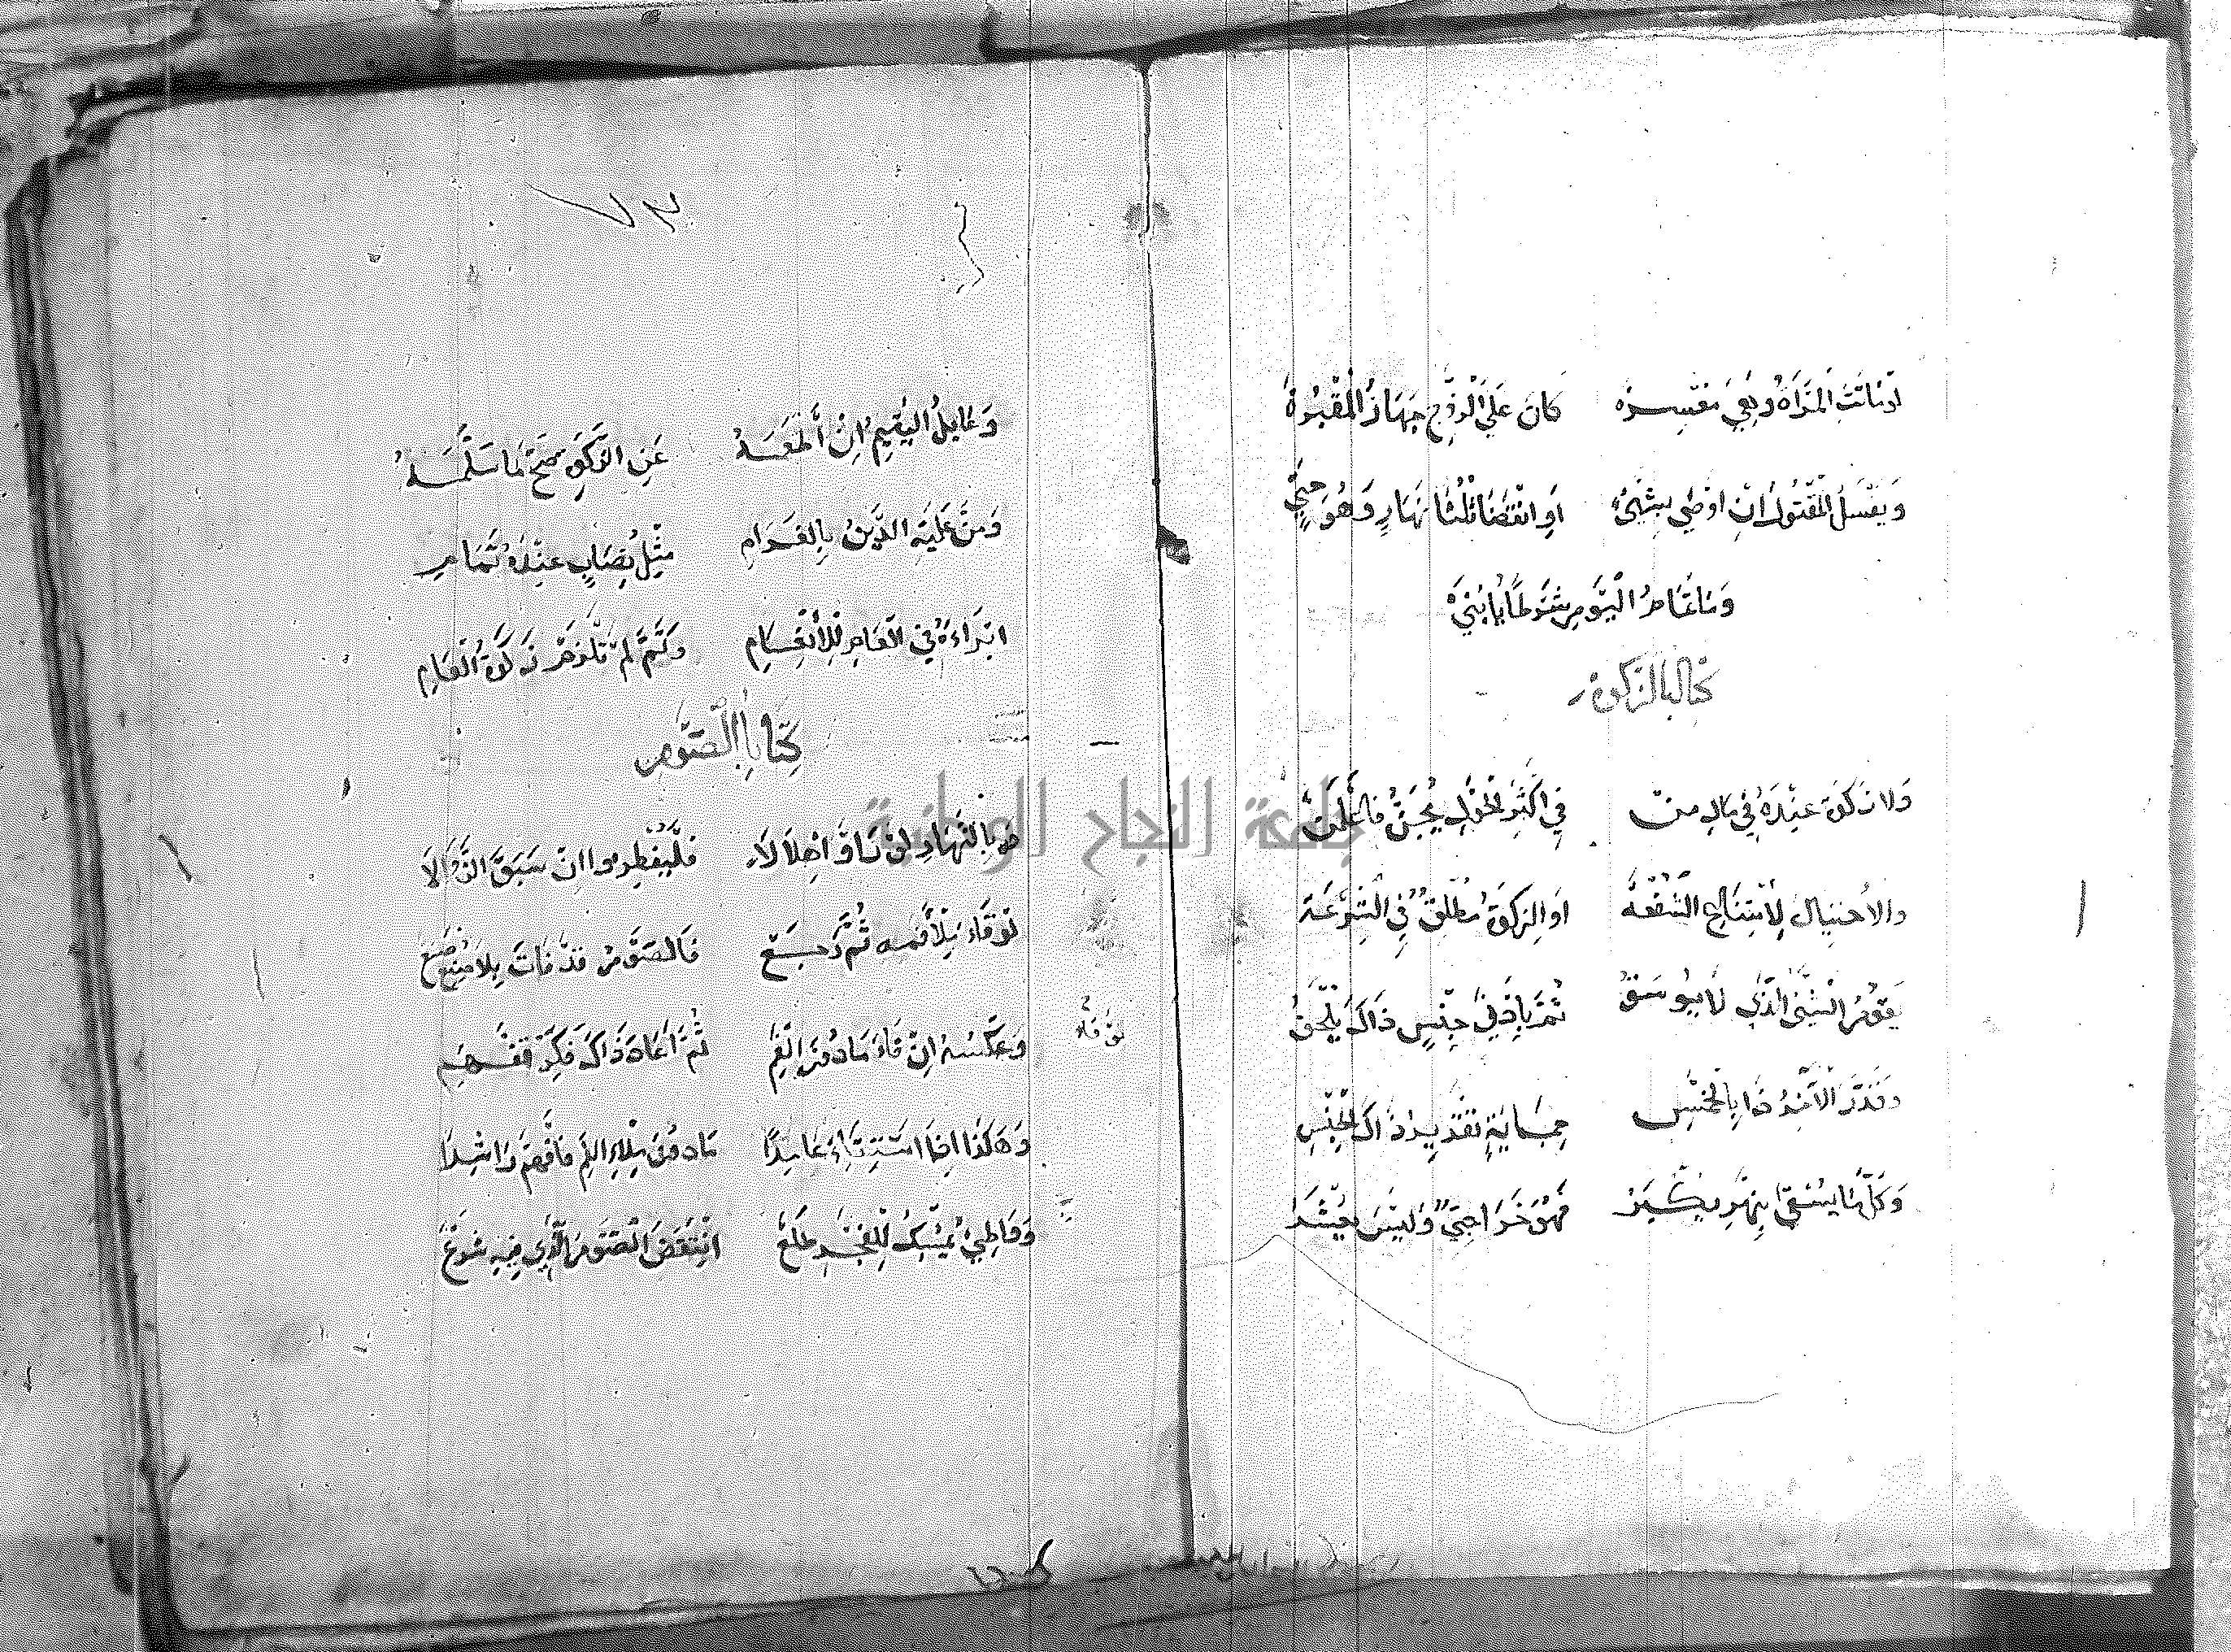 اذ ماتت المرأة وهي معسره كان على الزوج جهاز المقبرة
ويغسل المقتول ان اوصى بشيء او انقضا ثلثا نهار وهو حي
وما تمام اليوم شرطا يا بني
كتاب الزكوة
ولا زكوة عنده في مال من في اكثر الحول يجن فاعلمن
والاحتيال لامتناع الشفعة او الزكوة مطلق في الشرعة
يقوم الشيء الذي لا يوسق ثم باذني جنس ذاك يلحق
وقدر الآخر ذا بالخمس جباية تقدير ذاك الجنس
وكل ما يسقى بنهر يكبر فهو خراجي وليس يعشر
وعايل اليتيم ان أطعمه عن الزكوة صح ما سلمه
ومن عليه الدين بالغرام مثل نصاب عنده تمام
ابراءه في العام للأنعسام وتم لم تلزم زكوة العام
كتاب الصوم
هم بالنهار لو راوا هلالا فليفطروا ان سبق الزوالا
لو قاء ملأ فمه ثم رجع فالصوم قد فات بلا صنع صنع
لو قاء
وعكسه ان قاء مادون الفم ثم اعاد ذاك فكر تفهم
وهكذا اذا استقاء عامدا مادون ملء الفم فافهم راشدا
وواطئ يمسك للفجر طلع انتقض الصوم الذي فيه شرع